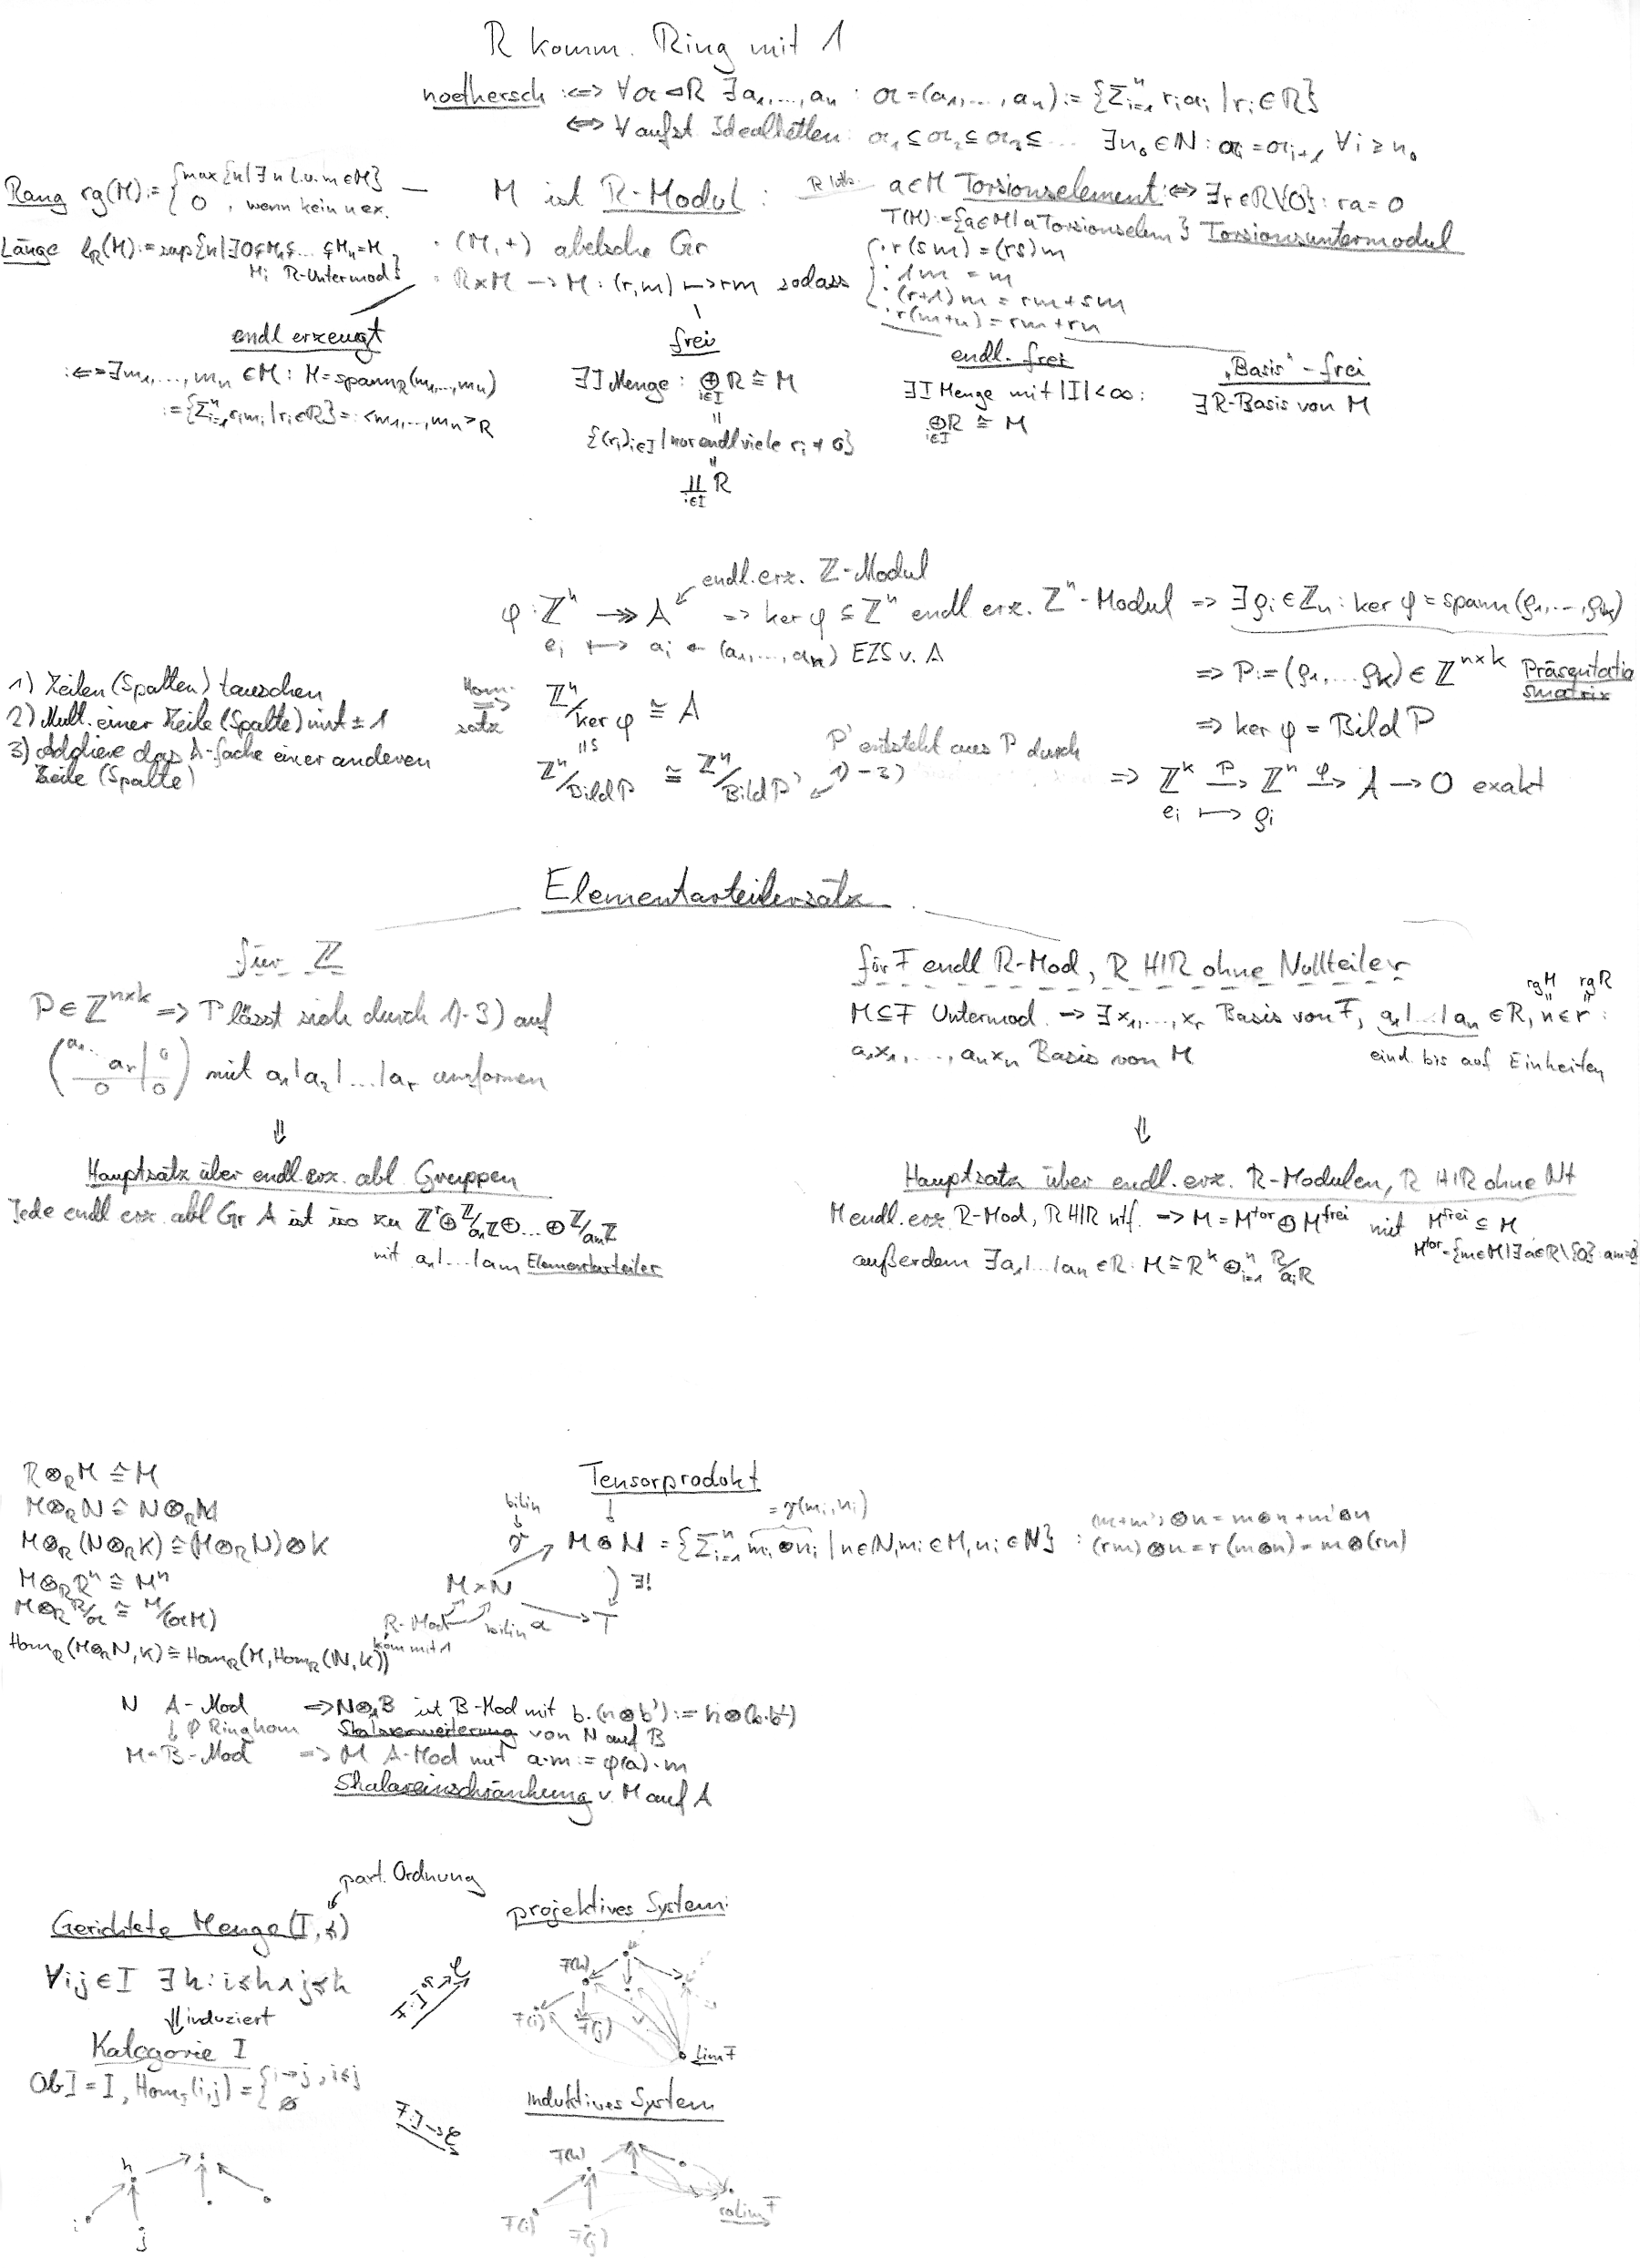 R komm. Ring mit 1
noethersch :⇔ ∀𝔞 ⊲ R ∃a₁,...,aₙ : 𝔞 = (a₁,...,aₙ) := {Σⁿᵢ₌₁ rᵢaᵢ | rᵢ ∈ R}
⇔ ∀ aufst Idealketten: 𝔞₁ ⊆ 𝔞₂ ⊆ 𝔞₃ ⊆ ... ∃n₀ ∈ N : 𝔞ᵢ = 𝔞ᵢ₊₁ ∀i ≥ n₀
Rang rg(M) := { max{n | ∃ n l.u. m ∈ M}
0 , wenn kein n ex.
Länge ℓ_R(M) := sup{n | ∃ 0 ⊊ M₁ ⊊ ... ⊊ Mₙ = M,
Mᵢ R-Untermod}
M ist R-Modul :
· (M,+) abelsche Gr
· R×M → M : (r,m) ↦ rm sodass
a ∈ M Torsionselement :⇔ ∃r ∈ R\{0} : ra = 0
T(M) := {a ∈ M | a Torsionselem} Torsionsuntermodul
· r(sm) = (rs)m
· 1m = m
· (r+1)m = rm + sm
· r(m+n) = rm + rn
endl erzeugt
:⇔ ∃m₁,...,mₙ ∈ M : M = spann_R(m₁,...,mₙ)
:= {Σⁿᵢ₌₁ rᵢmᵢ | rᵢ ∈ R} =: <m₁,...,mₙ>_R
frei
∃I Menge : ⊕_{i∈I} R ≅ M
=
{(rᵢ)_{i∈I} | nur endl viele rᵢ ≠ 0}
=
∐_{i∈I} R
endl. frei
∃I Menge mit |I| < ∞ :
⊕_{i∈I} R ≅ M
„Basis“-frei
∃ R-Basis von M
endl. erz. Z-Modul
φ : Zⁿ ↠ A ⇒ ker φ ⊆ Zⁿ endl erz. Zⁿ-Modul ⇒ ∃ρᵢ ∈ Zₙ : ker φ = spann(ρ₁,...,ρₖ)
eᵢ ↦ aᵢ ← (a₁,...,aₙ) EZS v. A
⇒ P := (ρ₁,...,ρₖ) ∈ Z^{n×k} Präsentatio
smatrix
⇒ ker φ = Bild P
⇒ Z^k →^P Zⁿ →^φ A → 0 exakt
eᵢ ↦ ρᵢ
1) Zeilen (Spalten) tauschen
2) Mult. einer Zeile (Spalte) mit ±1
3) Addiere das λ-fache einer anderen
Zeile (Spalte)
Hom.
⇒
satz
Zⁿ/ker φ ≅ A
Zⁿ/Bild P ≅ Zⁿ/Bild P'
P' entsteht aus P durch
1)-3)
Elementarteilersatz
für Z
P ∈ Z^{n×k} ⇒ P lässt sich durch 1)-3) auf
(a₁ ... aᵣ | 0
0 | 0) mit a₁|a₂|...|aᵣ umformen
⇓
Hauptsatz über endl. erz. abl. Gruppen
Jede endl erz abl Gr A ist iso zu Zʳ ⊕ Z/a₁Z ⊕ ... ⊕ Z/aₘZ
mit a₁|...|aₘ Elementarteiler
für F endl R-Mod, R HIR ohne Nullteiler
rg M rg R
M ⊆ F Untermod. → ∃x₁,...,xᵣ Basis von F, a₁|...|aₙ ∈ R, n ≤ r :
a₁x₁, ..., aₙxₙ Basis von M
eind. bis auf Einheiten
⇓
Hauptsatz über endl. erz. R-Modulen, R HIR ohne Nt
M endl. erz R-Mod, R HIR ntf. ⇒ M = M^tor ⊕ M^frei mit M^frei ⊆ M
M^tor = {m ∈ M | ∃a ∈ R\{0} : am = 0}
außerdem ∃a₁|...|aₙ ∈ R : M ≅ R^k ⊕ⁿᵢ₌₁ R/aᵢR
R ⊗_R M ≅ M
M ⊗_R N ≅ N ⊗_R M
M ⊗_R (N ⊗_R K) ≅ (M ⊗_R N) ⊗ K
M ⊗_R Rⁿ ≅ Mⁿ
M ⊗_R R/𝔞 ≅ M/(𝔞M)
Hom_R(M ⊗_R N, K) ≅ Hom_R(M, Hom_R(N, K))
Tensorprodukt
bilin
γ
= γ(mᵢ, nᵢ)
M ⊗ N = {Σⁿᵢ₌₁ mᵢ ⊗ nᵢ | n ∈ N, mᵢ ∈ M, nᵢ ∈ N} :
(m+m') ⊗ n = m ⊗ n + m' ⊗ n
(rm) ⊗ n = r(m ⊗ n) = m ⊗ (rn)
M × N
∃!
R-Mod
bilin α
T
kom mit 1
N A-Mod ⇒ N ⊗_A B ist B-Mod mit b.(n ⊗ b') := n ⊗ (b·b')
↓ φ Ringhom Skalarerweiterung von N auf B
M B-Mod ⇒ M A-Mod mit a·m := φ(a)·m
Skalareinschränkung v. M auf A
part. Ordnung
Gerichtete Menge (I, ≤)
∀i,j ∈ I ∃k : i ≤ k ∧ j ≤ k
⇓ induziert
Kategorie I
Ob I = I, Hom_I(i,j) = { i → j , i ≤ j
∅
k
i
j
F: I° → 𝒞
F: I → 𝒞
projektives System:
F(k)
F(i)
F(j)
lim F
Induktives System
F(k)
F(i)
F(j)
colim F